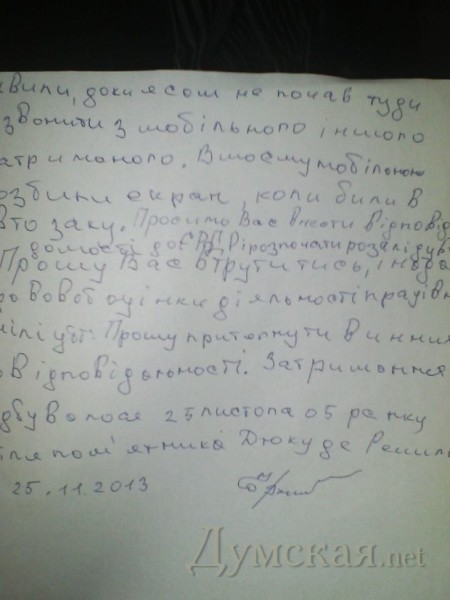 вили, доки я сам не почав туди
звонити з мобільного іншого
затриманого. В моєму мобільному
розбили екран, коли били в
автозаку. Просимо Вас внести відповід
домості до ЄРДР і розпочати розслідув
Прошу Вас втрутитись, і нада
равової оцінки діяльності праців
міліції. Прошу притягнути винних
о відповідальності. Затримання
ідбувалося 25 листопа 05 ранку
іля пам'ятника Дюку де Решильє
25.11.2013
Думская.net